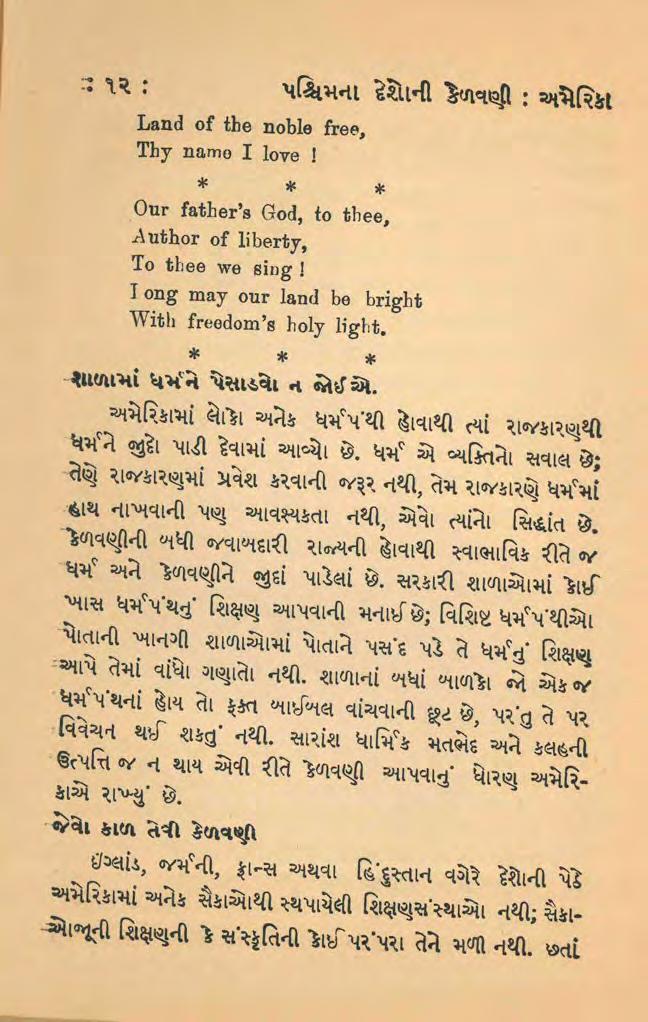 : ૧૨ : પશ્ચિમના દેશોની કેળવણી : અમેરિકા
Land of the noble free,
Thy name I love !
* * *
Our father's God, to thee,
Author of liberty,
To thee we sing !
Long may our land be bright
With freedom's holy light.
* * *
શાળામાં ધર્મને પેસાડવો ન જોઈએ.
અમેરિકામાં લોકો અનેક ધર્મપંથી હોવાથી ત્યાં રાજકારણથી
ધર્મને જુદો પાડી દેવામાં આવ્યો છે. ધર્મ એ વ્યક્તિનો સવાલ છે;
તેણે રાજકારણમાં પ્રવેશ કરવાની જરૂર નથી, તેમ રાજકારણે ધર્મમાં
હાથ નાખવાની પણ આવશ્યકતા નથી, એવો ત્યાંનો સિદ્ધાંત છે.
કેળવણીની બધી જવાબદારી રાજ્યની હોવાથી સ્વાભાવિક રીતે જ
ધર્મ અને કેળવણીને જુદાં પાડેલાં છે. સરકારી શાળાઓમાં કોઈ
ખાસ ધર્મપંથનું શિક્ષણ આપવાની મનાઈ છે; વિશિષ્ટ ધર્મપંથીઓ
પોતાની ખાનગી શાળાઓમાં પોતાને પસંદ પડે તે ધર્મનું શિક્ષણ
આપે તેમાં વાંધો ગણાતો નથી. શાળાનાં બધાં બાળકો જો એક જ
ધર્મપંથનાં હોય તો ફક્ત બાઈબલ વાંચવાની છૂટ છે, પરંતુ તે પર
વિવેચન થઈ શકતું નથી. સારાંશ ધાર્મિક મતભેદ અને કલહની
ઉત્પત્તિ જ ન થાય એવી રીતે કેળવણી આપવાનું ધોરણ અમેરિ-
કાએ રાખ્યું છે.
જેવો કાળ તેવી કેળવણી
ઇંગ્લાંડ, જર્મની, ફ્રાન્સ અથવા હિંદુસ્તાન વગેરે દેશોની પેઠે
અમેરિકામાં અનેક સૈકાઓથી સ્થપાયેલી શિક્ષણસંસ્થાઓ નથી; સૈકા-
ઓજૂની શિક્ષણની કે સંસ્કૃતિની કોઈ પરંપરા તેને મળી નથી. છતાં